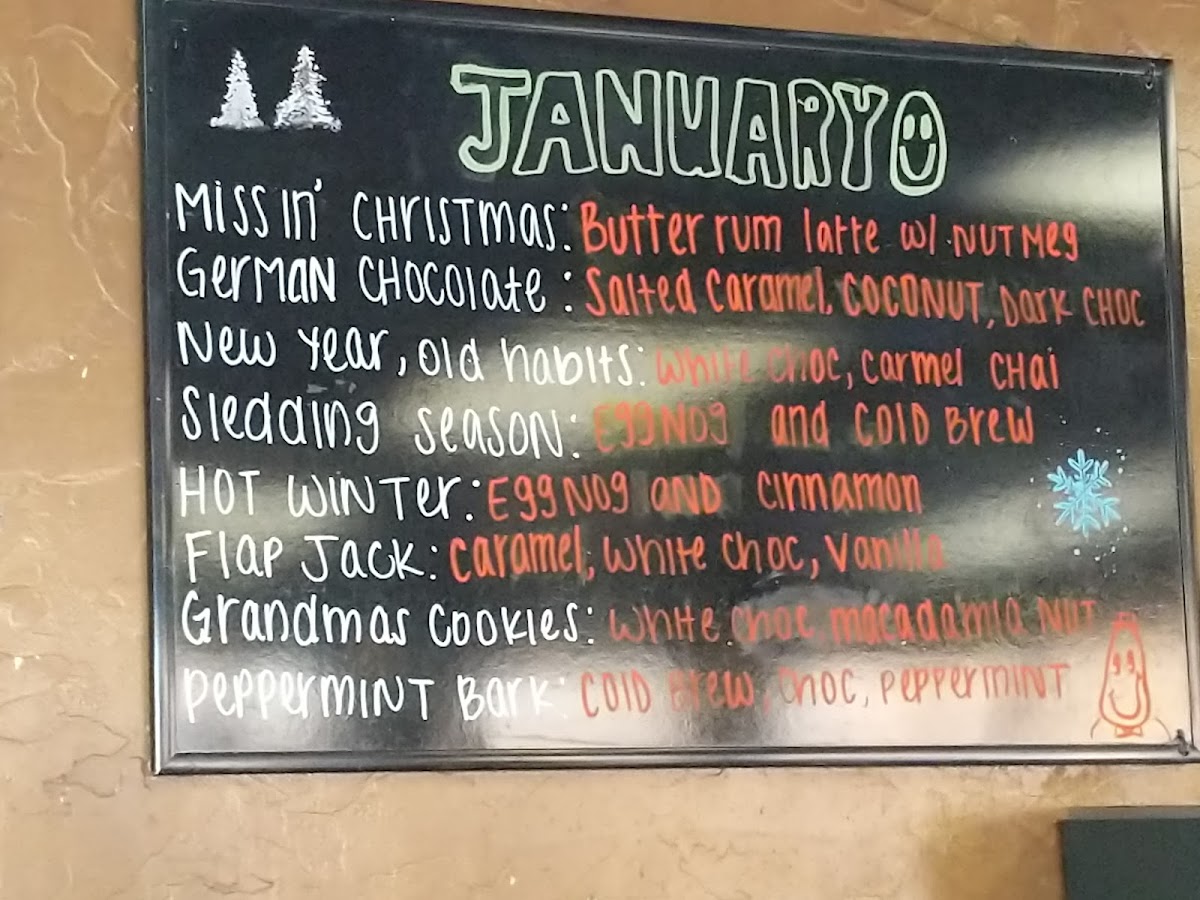 JANUARY
Missin' Christmas: Butter rum latte w/ Nutmeg
German Chocolate: Salted Caramel, Coconut, Dark Choc
New Year, old habits: White Choc, Carmel Chai
Sledding season: EggNog and Cold Brew
HOT WINTer: EggNog AND Cinnamon
Flap Jack: Caramel, White Choc, Vanilla
Grandmas Cookies: White choc, macadamia Nut
Peppermint Bark: Cold Brew, Choc, Peppermint